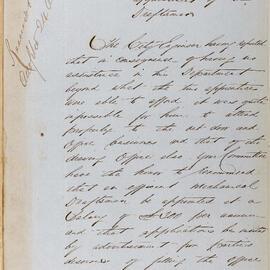 appointment of
Draftsman
The City Engineer having reported
that in consequence of having no
assistance in this Department
beyond that the two apprentices
were able to afford it was quite
impossible for him to attend
properly to the out door and
office business and that of the
drawing office also your Committee
have the honor to recommend
that an efficient Mechanical
Draftsman be appointed at a
Salary of £200 per annum
and that applications be invited
by advertisement for parties
desirous of filling the office